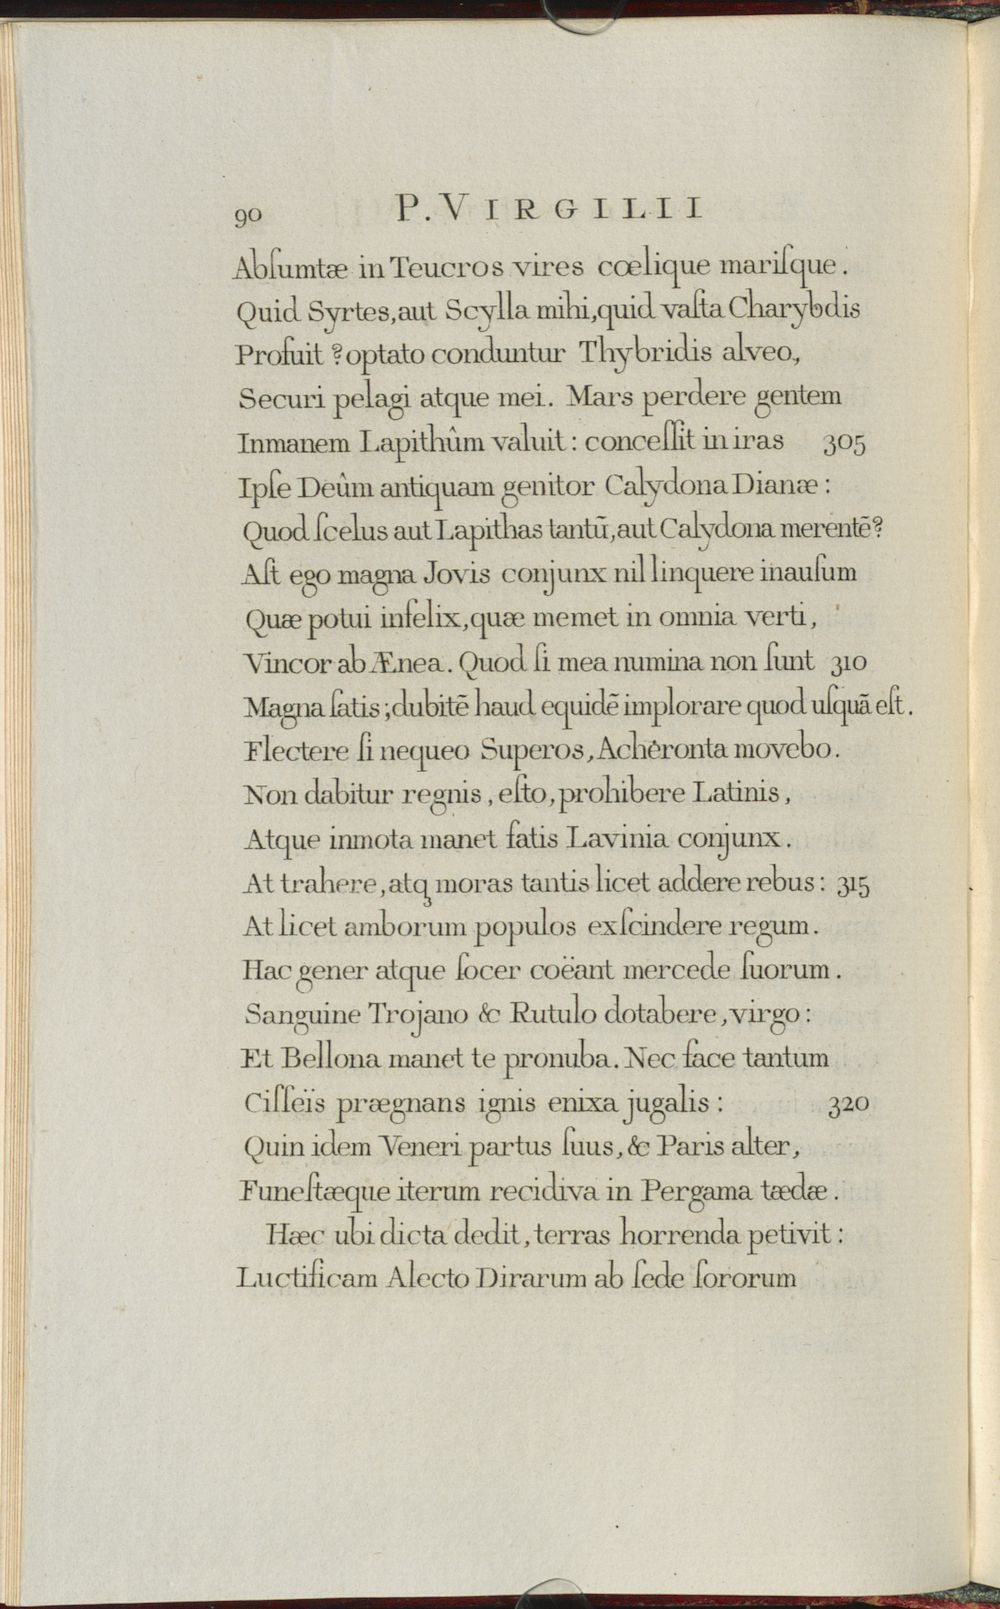 90 P. VIRGILII
Abſumtæ in Teucros vires cœlique mariſque.
Quid Syrtes, aut Scylla mihi, quid vaſta Charybdis
Profuit ? optato conduntur Thybridis alveo,
Securi pelagi atque mei. Mars perdere gentem
Inmanem Lapithûm valuit : conceſſit in iras 305
Ipſe Deûm antiquam genitor Calydona Dianæ :
Quod ſcelus aut Lapithas tantū, aut Calydona merentē?
Aſt ego magna Jovis conjunx nil linquere inauſum
Quæ potui infelix, quæ memet in omnia verti,
Vincor ab Ænea. Quod ſi mea numina non ſunt 310
Magna ſatis; dubitē haud equidē implorare quod uſquā eſt.
Flectere ſi nequeo Superos, Acheronta movebo.
Non dabitur regnis, eſto, prohibere Latinis,
Atque inmota manet fatis Lavinia conjunx.
At trahere, atqꝫ moras tantis licet addere rebus : 315
At licet amborum populos exſcindere regum.
Hac gener atque ſocer coëant mercede ſuorum.
Sanguine Trojano & Rutulo dotabere, virgo :
Et Bellona manet te pronuba. Nec face tantum
Ciſſeïs prægnans ignis enixa jugalis : 320
Quin idem Veneri partus ſuus, & Paris alter,
Funeſtæque iterum recidiva in Pergama tædæ.
Hæc ubi dicta dedit, terras horrenda petivit :
Luctificam Alecto Dirarum ab ſede ſororum